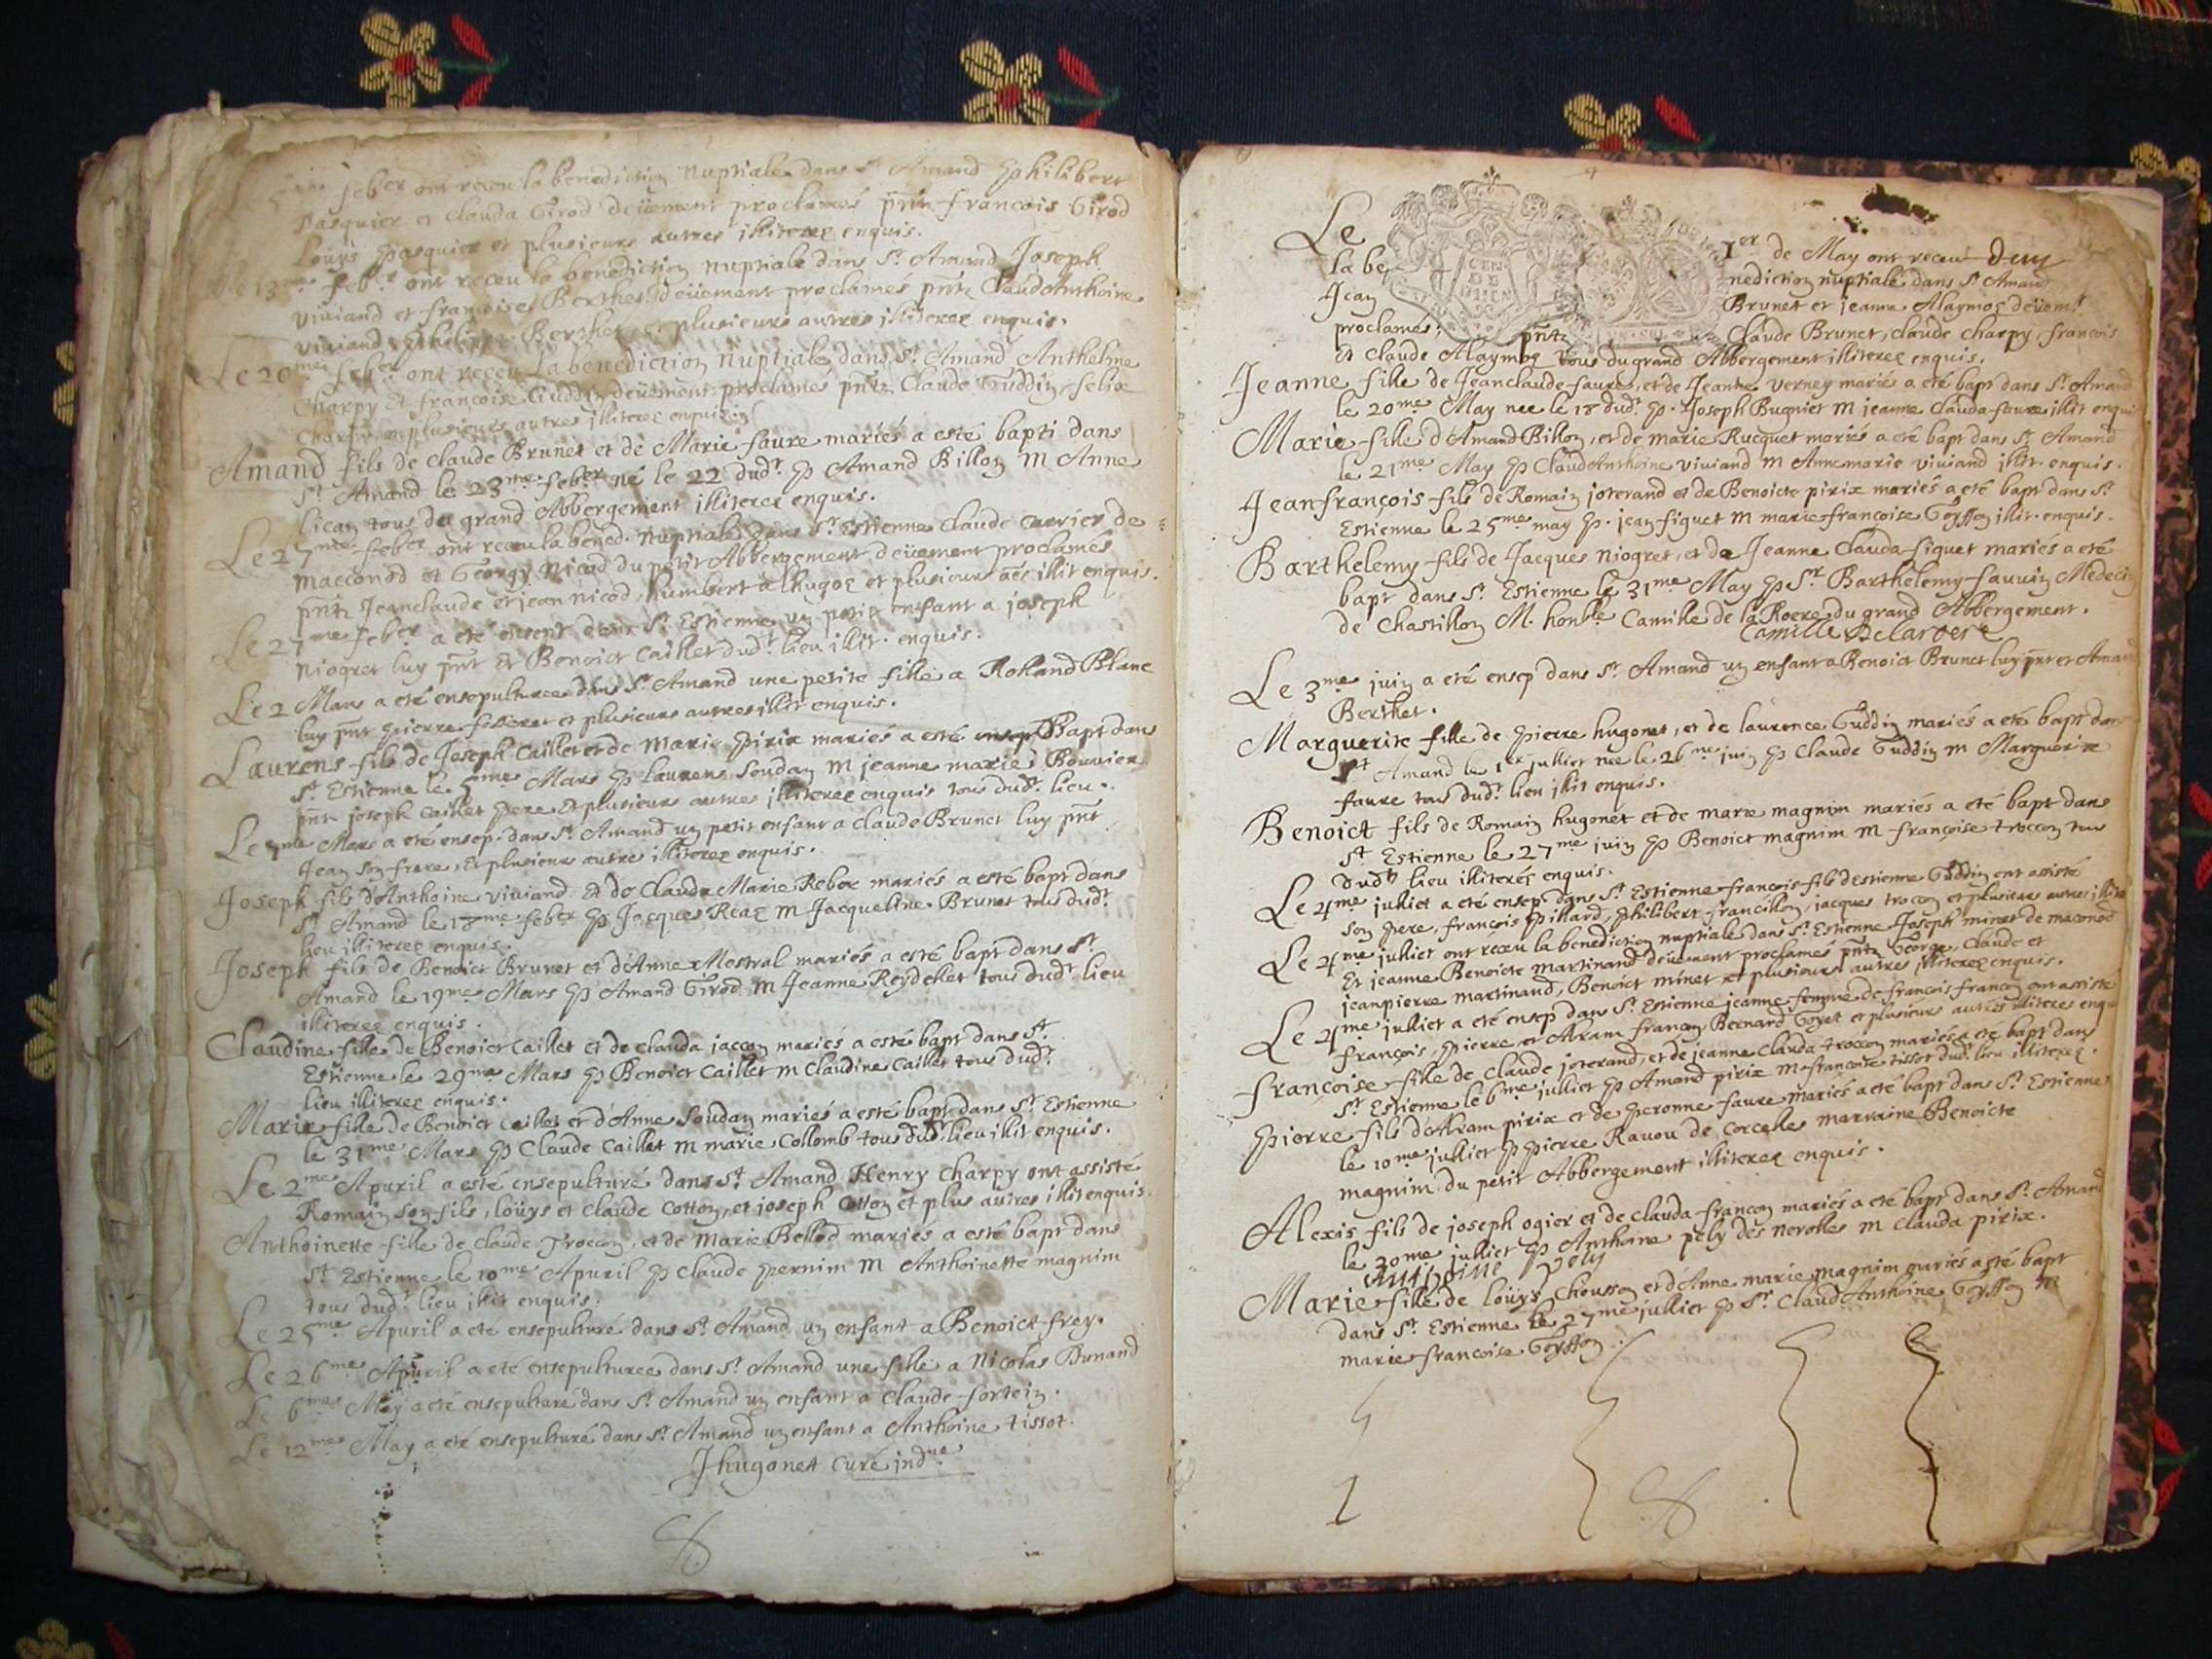 feb.er ont receu la benediction nuptiale dans st Amand philibert
pasquier et Clauda Girod deüement proclamés pñtz françois Girod
Loüys pasquier et plusieurs autres illiterez enquis.
Le 13me feb.r ont receu la benediction nuptiale dans St Amand Joseph
viuiand et françoise Berthet deüement proclames pñtz ClaudAnthoine
viuiand philippe Berthet et plusieurs autres illiterez enquis.
Le 20me feb.er ont receu la benediction nuptiale dans St Amand Anthelme
Charpy et françoise Guddin deüement proclamés pñtz Claude Guddin felix
Charpy plusieurs autres illiterez enquis
Amand fils de Claude Brunet et de Marie faure mariés a esté bapti dans
St Amand le 23me feb.er né le 22 dudt P Amand Billon M Anne
lican tous du grand Abbergement illiterez enquis.
Le 27me feber ont receu la bened. nuptiale dans St Estienne Claude Carrier de
macconod et Georgy Nicod du petit Abbergement deüement proclamés
pñtz Jeanclaude et jean nicod, humbert alhugoz et plusieurs aes illit enquis.
Le 27me feber a eté ensept dans St Estienne un petit enfant a joseph
niogret luy pñt et Benoict Caillet dudt lieu illit. enquis.
Le 2 Mars a eté ensepulturee dans St Amand une petite fille a Rolland Blanc
luy pñt pierre et plusieurs autres illit enquis.
Laurens fils de Joseph Caillet et de Marie pirix mariés a esté Bapt dans
St Estienne le 5me Mars P laurens Soudan M jeanne marie Bouuier
pñtz joseph Caillet pere et plusieurs autres illiterez enquis tous dudt lieu.
Le 7me Mars a eté ensep. dans St Amand un petit enfant a Claude Brunet luy pñt
Jean son frere, et plusieurs autres illiterez enquis.
Joseph fils d'Anthoine viuiand et de Clauda Marie Rebox mariés a esté bapt dans
St Amand le 18me feber P Jacques Reaz M Jacqueline Brunet tous dudt
lieu illiterez enquis.
Joseph fils de Benoict Brunet et d'Anne Mestral mariés a esté bapt dans St
Amand le 19me Mars P Amand Girod M Jeanne Reydellet tous dudt lieu
illiterez enquis.
Claudine fille de Benoict Caillet et de Clauda jaccon maries a esté bapt dans St
Estienne le 29me Mars P Benoict Caillet M Claudine Caillet tous dudt
lieu illiterez enquis.
Marie fille de Benoict Caillet et d'Anne Soudan mariés a esté bapt dans St Estienne
le 31me Mars P Claude Caillet M marie Collomb tous dudt lieu illit enquis.
Le 2me Apuril a esté ensepulturé dans St Amand Henry Charpy ont assisté
Romain son fils, loüys et Claude Cotton, et joseph Cotton et plus autres illit enquis.
Anthoinette fille de Claude Troccon, et de Marie Bellod mariés a esté bapt dans
St Estienne le 10me Apuril P Claude pernim M Anthoinette magnim
tous dudt lieu illit enquis.
Le 25me Apuril a eté ensepulturé dans St Amand un enfant a Benoict frey.
Le 26me Apuril a eté ensepulturee dans St Amand une fille a Nicolas Bunand
Le 6me May a eté ensepulturé dans St Amand un enfant a Claude
Le 12me May a eté ensepulturé dans St Amand un enfant a Anthoine tissot.
Jhugonet Curé indne
8
Le 1er de May ont receu
la benediction nuptiale dans St Amand
Jean Brunet et jeanne Alaymoz deüemt
proclamés, pñtz Claude Brunet, Claude Charpy, françois
et Claude Alaymoz tous du grand Abbergement illiterez enquis.
Jeanne fille de Jeanclaude faure, et de Jeanne verney mariés a eté bapt dans St Amand
le 20me May nee le 18 dudt P. Joseph Bugniet M jeanne Clauda faure illit enquis
Marie fille d'Amand Billon, et de marie Rucquet mariés a eté bapt dans St Amand
le 21me May P ClaudAnthoine viuiand M Annemarie viuiand illit. enquis.
Jeanfrançois fils de Romain joterand et de Benoicte pirix mariés a eté bapt dans St
Estienne le 25me may P. jean figuet M marie françoise Goyffon illit. enquis.
Barthelemy fils de Jacques Niogret, et de Jeanne Clauda figuet mariés a eté
bapt dans St Estienne le 31me May P Sr Barthelemy fauuin Medecin
de Chastillon M. honble Camille de la Roere du grand Abbergement.
Camille Delaroere
Le 3me juin a eté ensep dans St Amand un enfant a Benoict Brunet luy pñt et Amand
Berthet.
Marguerite fille de pierre hugonet, et de laurence Guddin mariés a eté bapt dans
St Amand le 1er julliet nee le 26me juin P Claude Guddin M Marguerite
faure tous dudt lieu illit enquis.
Benoict fils de Romain hugonet et de marie magnim mariés a eté bapt dans
St Estienne le 27me juin P Benoict magnim M françoise troccon tous
dudt lieu illiterés enquis.
Le 4me julliet a eté ensep dans St Estienne françois fils d'Estienne Guddin ont assisté
son pere, françois pillard, philibert francillon, jacques trocon et plusieurs autres illite
Le 4me julliet ont receu la benediction nuptiale dans St Estienne Joseph minet de maconod
et jeanne Benoicte martinand deüement proclamés pñtz George, Claude et
jeanpierre martinand, Benoict minet et plusieurs autres illiterez enquis.
Le 4me julliet a eté ensep dans St Estienne jeanne femme de françois françon ont assisté
françois, pierre, et Abram françon Bernard Goyet et plusieurs autres illiteres enqu
françoise fille de Claude joterand, et de jeanne Clauda troccon mariés a eté bapt dans
St Estienne le 6me julliet P Amand pirix M françoise tissot dudt lieu illiterez.
pierre fils d'Abram pirix et de peronne faure mariés a eté bapt dans St Estienne
le 10me julliet P pierre Rauou de Corcelles marraine Benoicte
magnim du petit Abbergement illiterez enquis.
Alexis fils de joseph ogier et de Clauda françon mariés a eté bapt dans St Amand
le 20me julliet P Anthoine pely des nerolles M Clauda pirix.
Anthoine pely
Marie fille de loüys Chousson et d'Anne marie magnim mariés a eté bapt
dans St Estienne le 27me julliet P Sr ClaudAnthoine Goyffon M
marie françoise Goyffon.
8